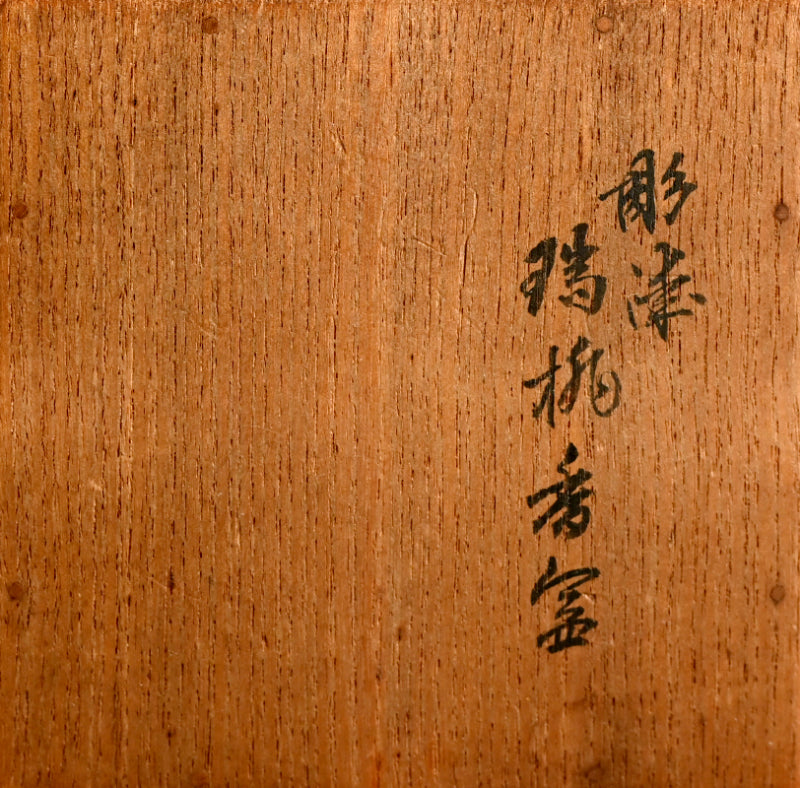 彫漆
瑞桃香盒